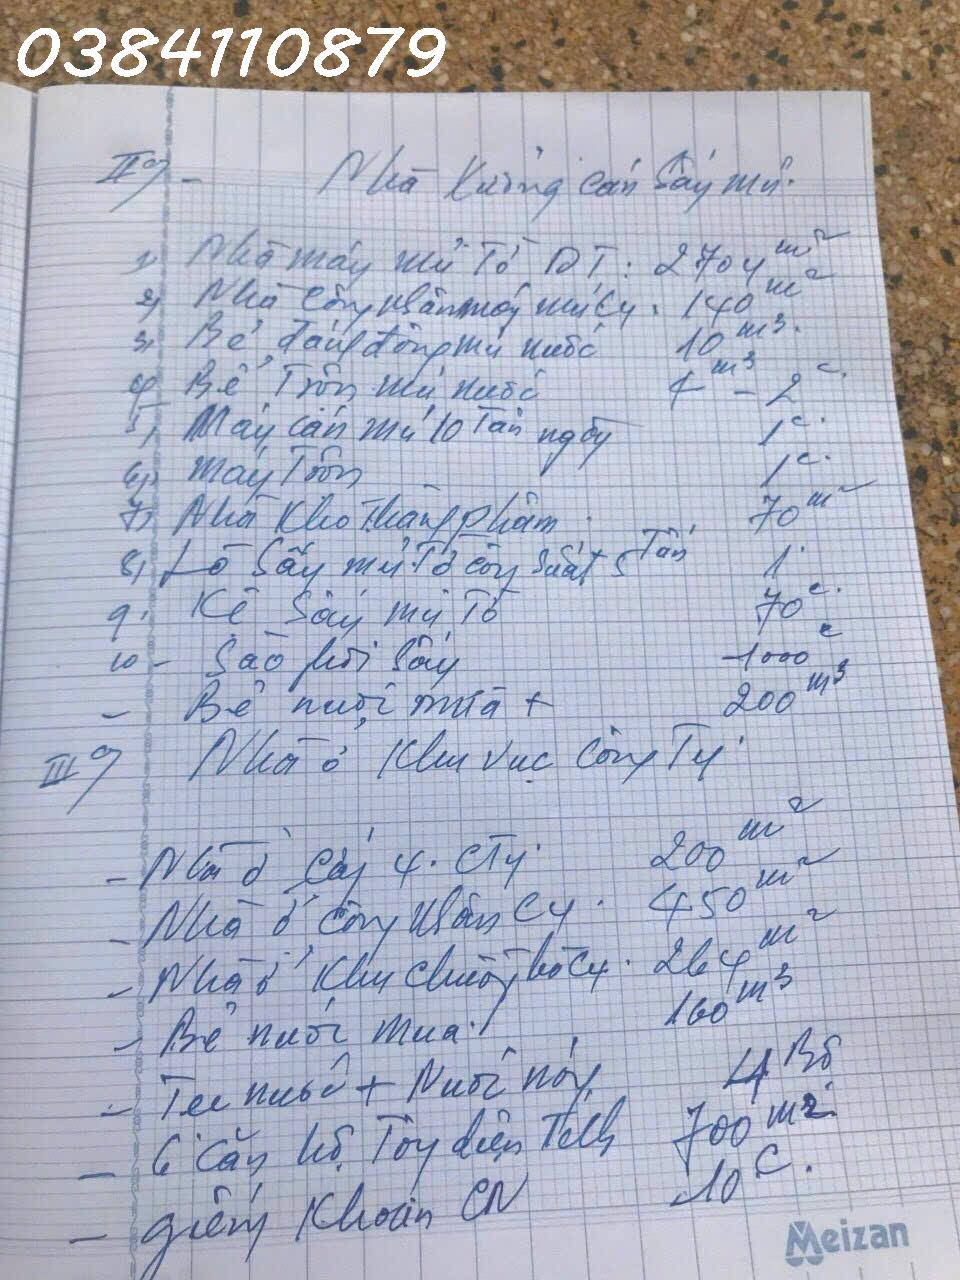 0384110879
II, - Nhà xưởng cán sấy mủ.
1, Nhà máy mủ Tờ DT: 2704 m²
2, Nhà công nhân máy mủ Cty. 140 m²
3, Bể đánh đông mủ nước 10 m³.
4, Bể Trộn mủ nước 4 m³ - 2 c.
5, Máy cán mủ 10 Tấn ngày 1 c.
6, máy Trộn 1 c.
7, Nhà kho thành phẩm 70 m²
8, Lò Sấy mủ Tờ công suất 5 Tấn 1
9. Kệ Sấy mủ Tờ 70 c.
10 - Sào phơi sấy 1000 c
- Bể nước mưa + 200 m³
III, Nhà ở khu vực công Ty
- Nhà ở cấp 4. CTy. 200 m²
- Nhà ở công nhân Cty. 450 m²
- Nhà ở khu chuồng bò Cty. 264 m²
- Bể nước mưa. 160 m³
- Tec nước + Nước nóng 4 Bộ
- 6 căn hộ Tây diện tích 700 m²
- giếng khoan CN 10 C.
Meizan